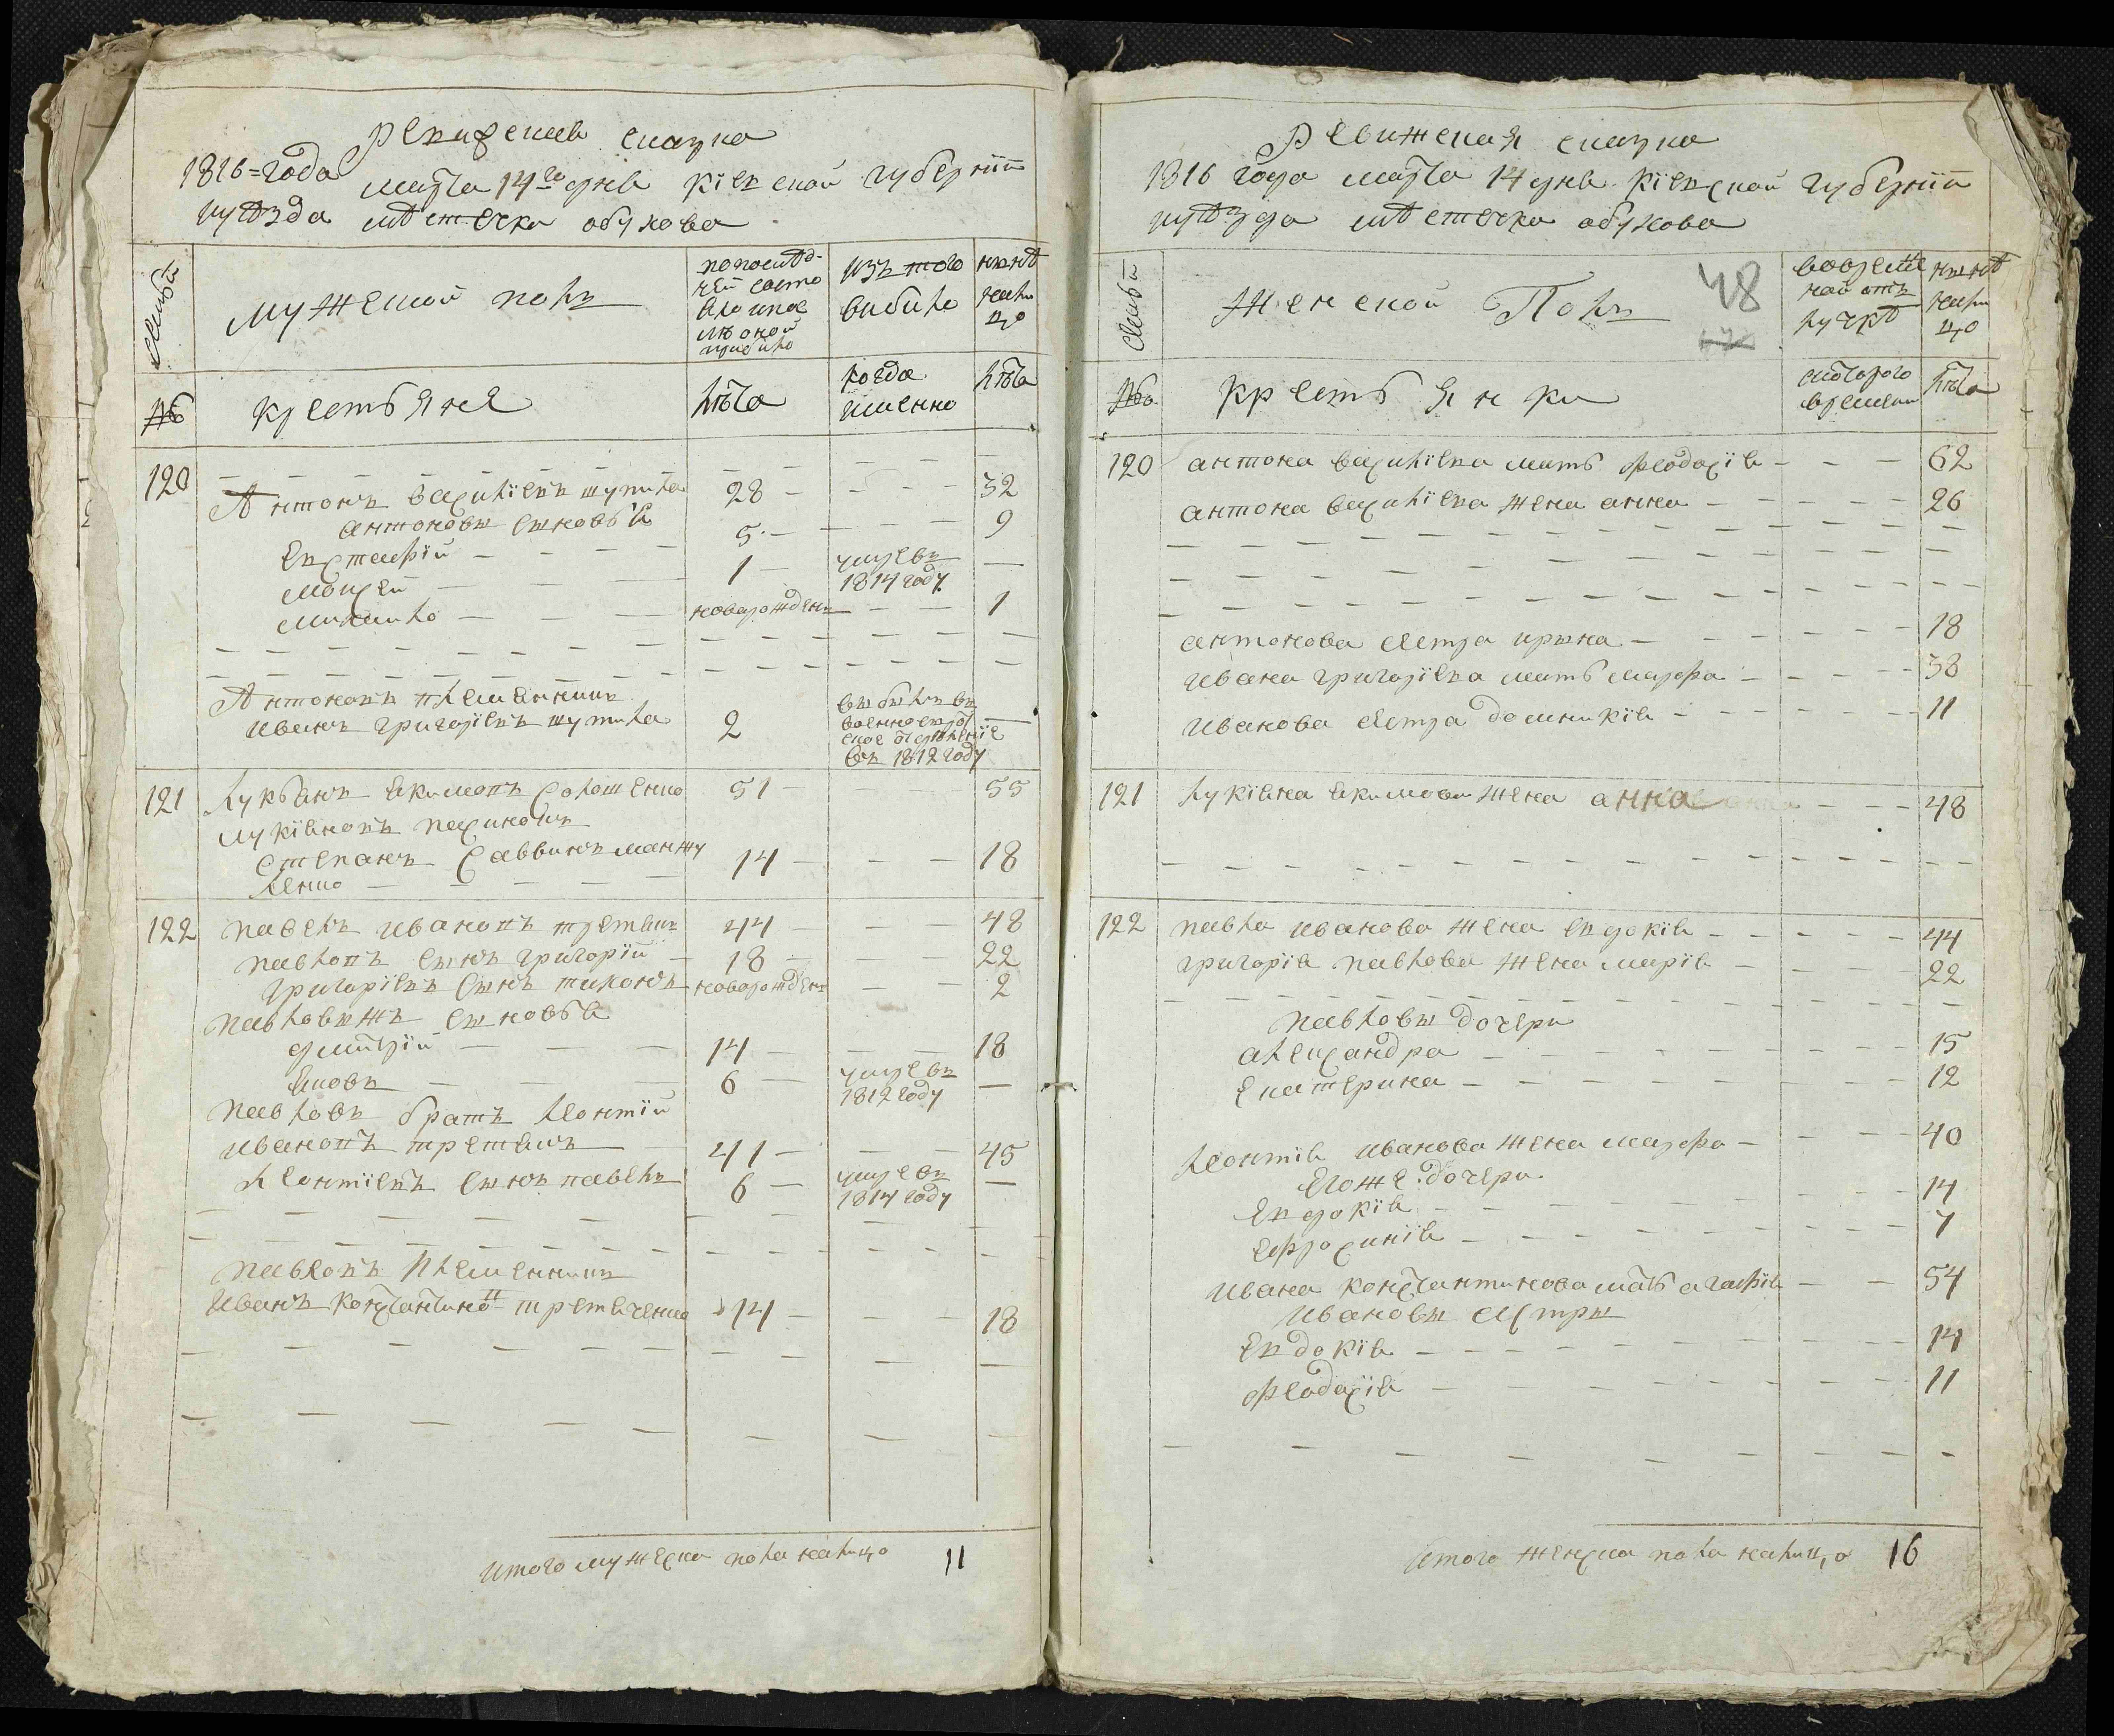 Ревижская сказка
1816=года марта 14го дня Кіевской губерніи
и уѣзда мѣстечка обухова
семьи
мужеской полъ
по послѣд-
ней
состо
яло и
после
оной
прибыло
изъ того
выбыло
нынѣ
на ли
цо
№
крестьяне
лѣта
когда
именно
лѣта
120
Антонъ васильевъ шупика 28 32
антоновы сыновья
Евстафій 5 9
Моисей 1 умре въ 1814 году
Михайло новорожденъ 1
Антоновъ племянникъ
иванъ григоріевъ шупика 2 выбылъ въ
въ 1812 году
121 лукьянъ якимовъ солошенко 51 55
лукіяновъ пасинокъ
степанъ саввинъ манжу
ленко 14 18
122 павелъ ивановъ третякъ 44 48
павловъ сынъ григорій 18 22
григоріевъ сынъ тихонъ новорожденъ 2
павловы жъ сыновья
дмитрій 14 18
яковъ 6 умре въ 1812 году
павловъ братъ леонтій
ивановъ третякъ 41 45
леонтіевъ сынъ павелъ 6 умре въ 1814 году
павловъ племянникъ
иванъ константиновъ третяченко 14 18
итого мужеска пола налицо 11
Ревижская сказка
1816 года марта 14 дня Кіевской губерніи
и уѣзда мѣстечка обухова
семьи
женской Полъ
48
во времян
ной отъ
лучкѣ
нынѣ
на ли
цо
№
крестьянки
съ которого
времени
лѣта
120 антона василіева мать феодосія 62
антона василіева жена анна 26
антонова сестра ирина 18
ивана григоріева мать марфа 38
иванова сестра доминикія 11
121 лукіяна якимова жена анна 48
122 павла иванова жена евдокія 44
григорія павлова жена марія 22
павловы дочери
александра 15
Екатерина 12
леонтія иванова жена марфа 40
Егоже дочери
Евдокія 14
Ефросинія 7
ивана константинова мать агафія 54
ивановы сестры
Евдокія 14
феодосія 11
итого женска пола налицо 16